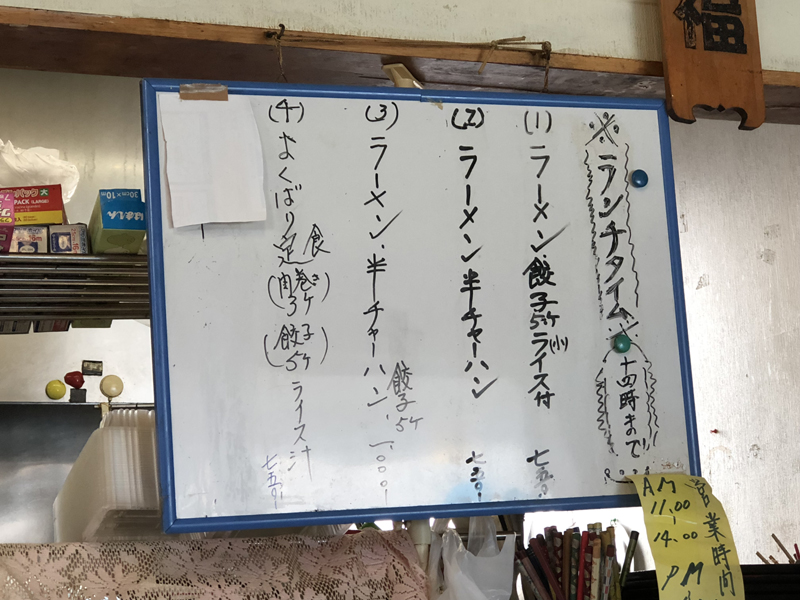 福
※ランチタイム※
十四時まで
(1) ラーメン、餃子5ヶライス(小)付 七五〇-
(2) ラーメン 半チャーハン 七五〇-
(3) ラーメン、半チャーハン、餃子5ヶ 一、〇〇〇-
(4) よくばり定食
(肉巻き3ヶ)
(餃子5ヶ)
ライス汁 七五〇-
営業時間
AM
11.00
14.00
PM
30cm×10
PACK (LARGE)
大